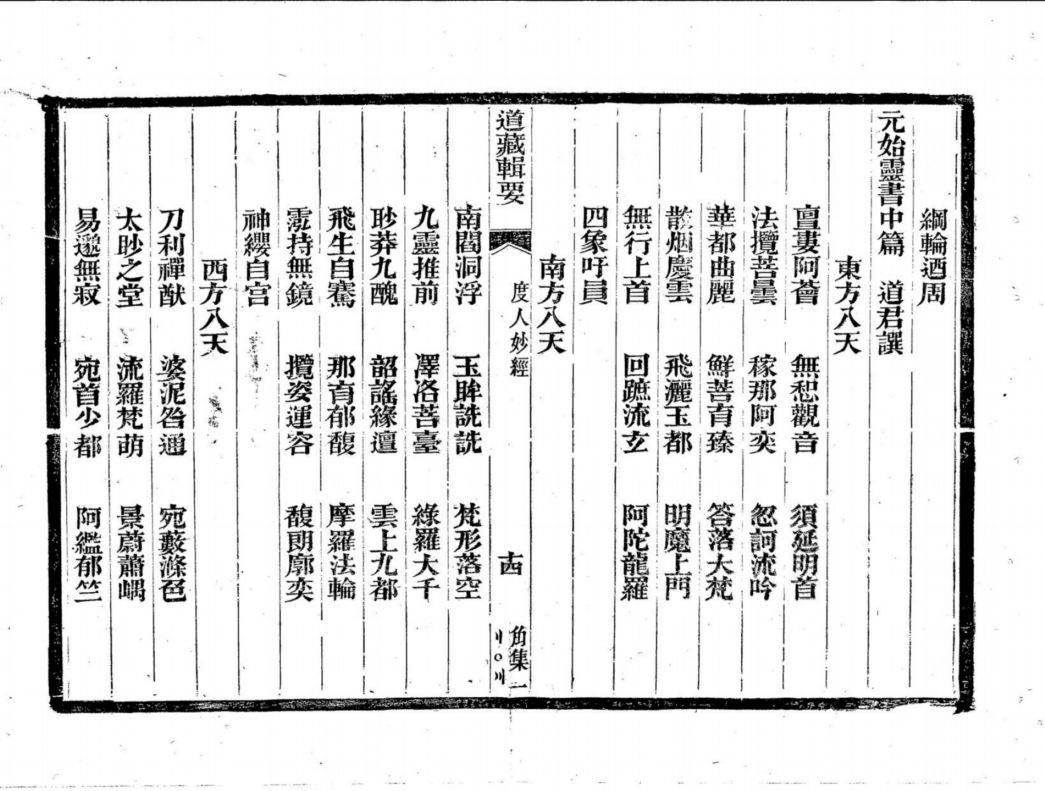 綱輪迺周
元始靈書中篇 道君譔
東方八天
亶婁阿薈 無惒觀音 須延明首
法攬菩曇 稼那阿奕 忽訶流吟
華都曲麗 鮮菩育臻 答落大梵
散烟慶雲 飛灑玉都 明魔上門
無行上首 回蹠流玄 阿陀龍羅
四象吁員
南方八天
道藏輯要 度人妙經 十四 角集一
南閻洞浮 玉眸詵詵 梵形落空
九靈推前 澤洛菩臺 綠羅大千
眇莽九醜 韶謠緣邅 雲上九都
飛生自騫 那育郁馥 摩羅法輪
霐持無鏡 攬姿運容 馥朗廓奕
神纓自宮
西方八天
刀利禪猷 婆泥咎通 宛藪滌色
太眇之堂 流羅梵萌 景蔚蕭嵎
易邈無寂 宛首少都 阿㰐郁竺